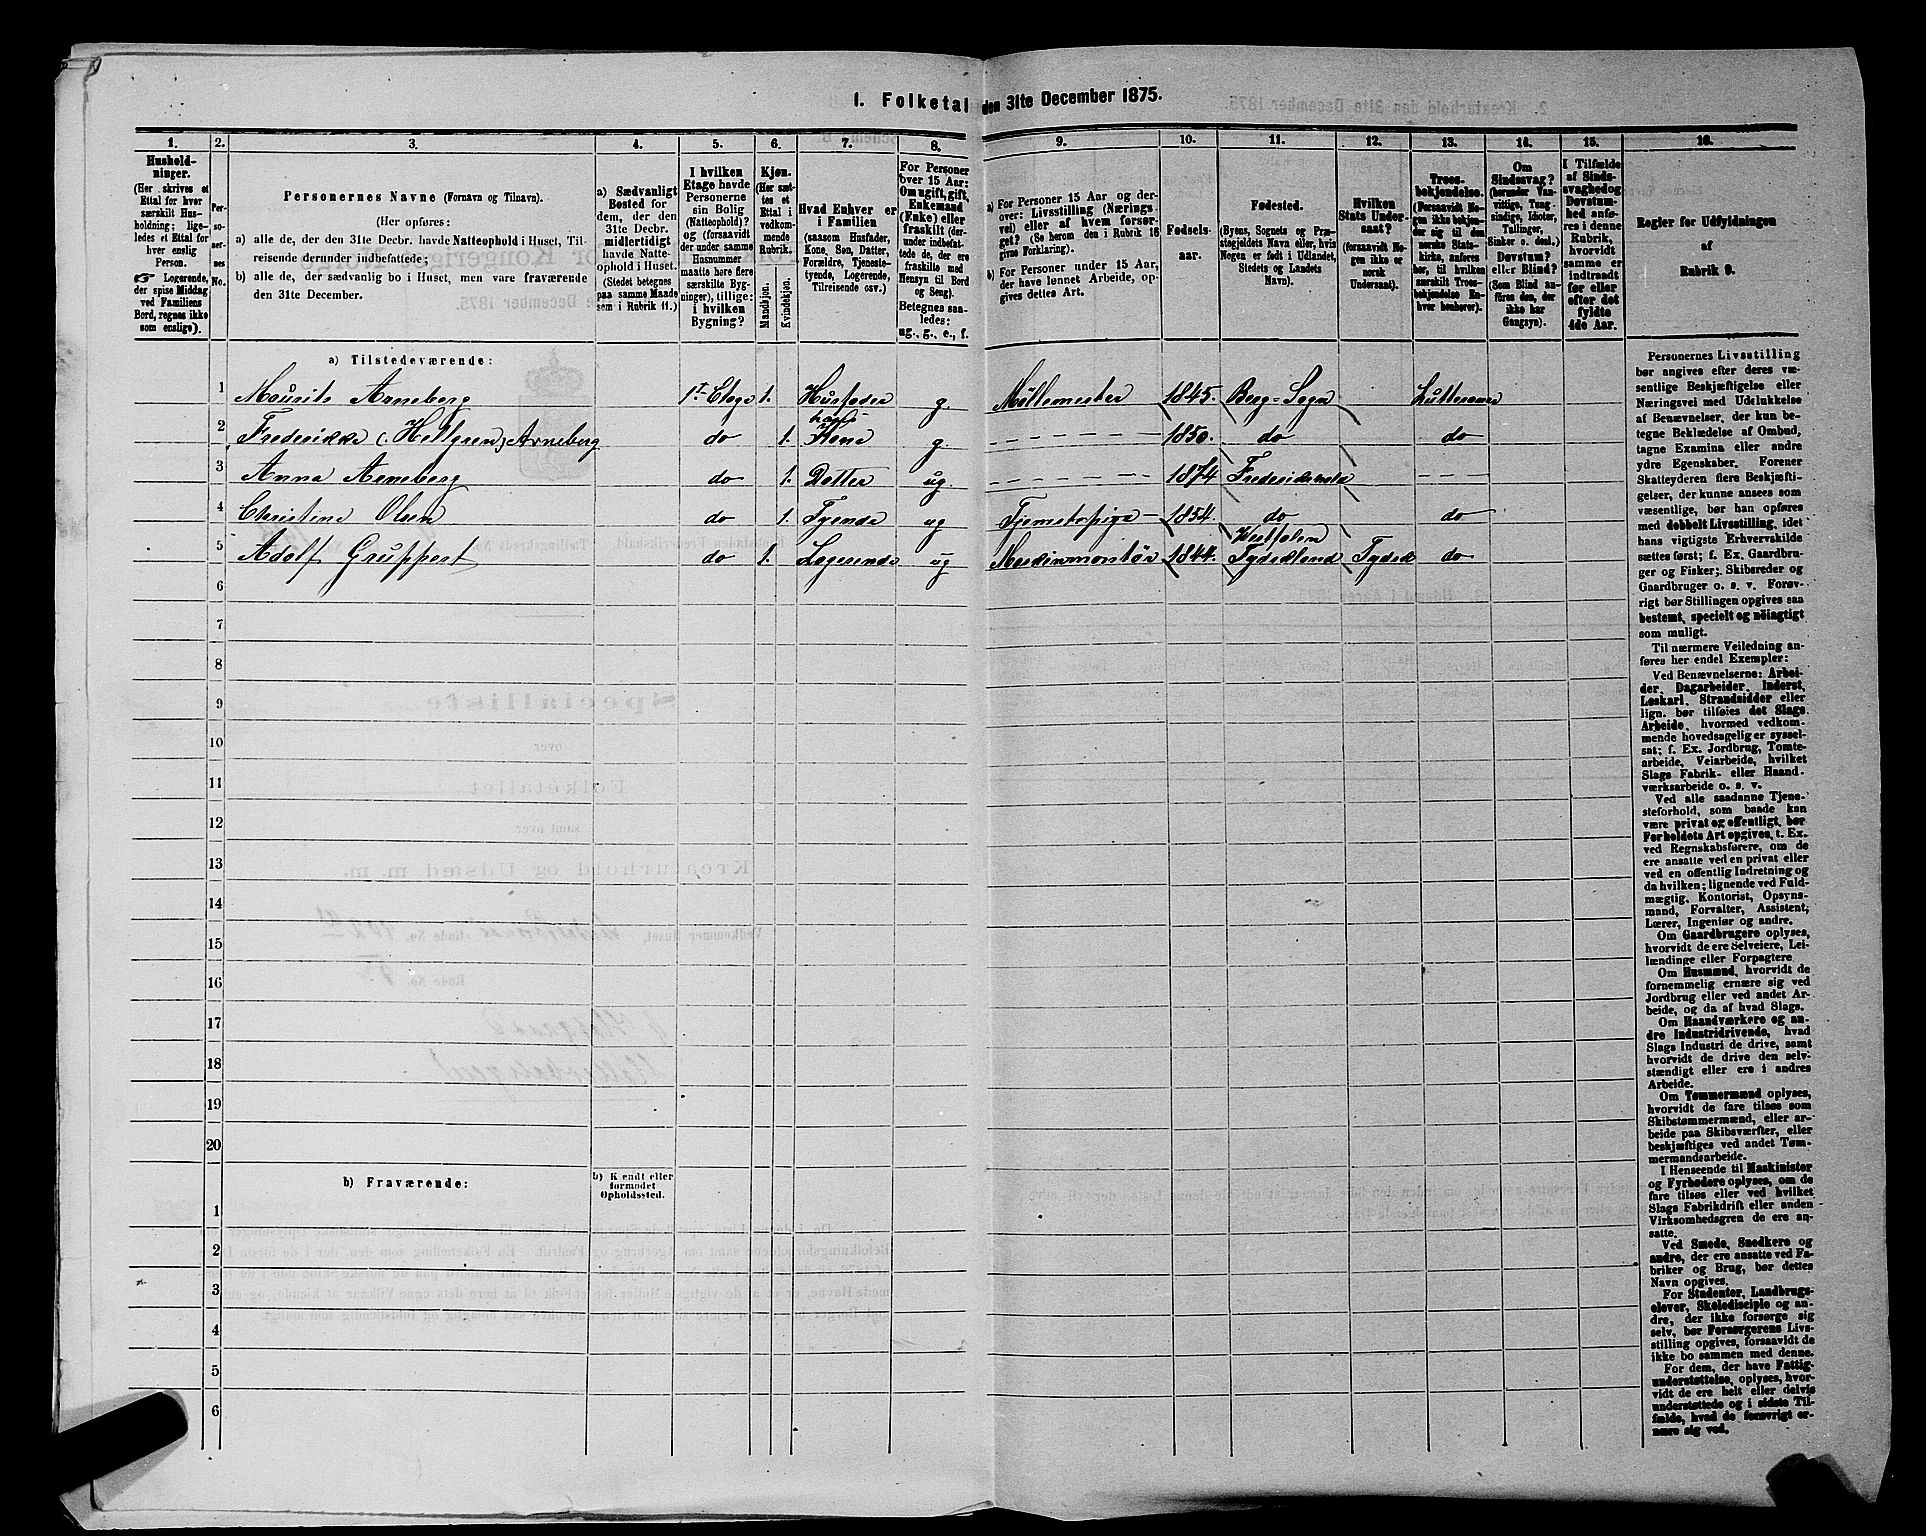 1. Folketal den 31te December 1875.
1. 2. 3. 4. 5. 6. 7. 8. 9. 10. 11. 12. 13. 14. 15. 16.
Hushold-
ninger.
(Her skrives et
Ettal for hver
særskilt Hus-
holdning; lige-
ledes et Ettal for
hver enslig
Person.
☞ Logerende,
der spise Middag
ved Familiens
Bord, regnes ikke
som enslige).
Per-
so-
ner-
nes
No.
Personernes Navne (Fornavn og Tilnavn).
(Her opføres:
a) alle de, der den 31te Decbr. havde Natteophold i Huset, Til-
reisende derunder indbefattede;
b) alle de, der sædvanlig bo i Huset, men vare fraværende
den 31te December.
a) Sædvanligt
Bosted for
dem, der den
31te Decbr.
midlertidigt
havde Natte-
ophold i Huset.
(Stedet betegnes
paa samme Maade
som i Rubrik 11.)
I hvilken
Etage havde
Personerne
sin Bolig
(Natteophold)?
og (forsaavidt
der under samme
Husnummer
maatte høre flere
særskilte Byg-
ninger), tillige:
i hvilken
Bygning?
Kjøn.
(Her sæt-
tes et
Ettal i
vedkom-
mende
Rubrik.
Mandkjøn.
Kvindekjøn.
Hvad Enhver er
i Familien
(saasom Husfader,
Kone, Søn, Datter,
Forældre, Tjeneste-
tyende, Logerende,
Tilreisende osv.)
For Personer
over 15 Aar:
Om ugift, gift,
Enkemand
(Enke) eller
fraskilt (der-
under indbefat-
tede de, der ere
fraskilte med
Hensyn til Bord
og Seng).
Betegnes saa-
ledes:
ug., g., e., f.
a) For Personer 15 Aar og der-
over: Livsstilling (Nærings-
vei) eller af hvem forsør-
get? (Se herom den i Rubrik 16
givne Forklaring).
b) For Personer under 15 Aar,
der have lønnet Arbeide, op-
gives dettes Art.
Fødsels-
aar.
Fødested.
(Byens, Sognets og Præ-
stegjeldets Navn eller, hvis
Nogen er født i Udlandet,
Stedets og Landets
Navn).
Hvilken
Stats Under-
saat?
(forsaavidt No-
gen ikke er
norsk
Undersaat).
Troes-
bekjendelse.
(Forsaavidt No-
gen ikke beken-
der sig til den
norske Stats-
kirke, anføres
her, til hvilken
særskilt Troes-
bekjendelse En-
hver henhører).
Om
Sindssvag?
(herunder Van-
vittige, Tung-
sindige, Idioter,
Tullinger,
Sinker o. desl.)
Døvstum?
eller Blind?
(Som Blind an-
føres den, der
ikke har
Gangsyn).
I Tilfælde
af Sinds-
svaghed og
Døvstum-
hed anfø-
res i denne
Rubrik,
hvorvidt
samme er
indtraadt
før eller
efter det
fyldte
4de Aar.
Regler for Udfyldningen
af
Rubrik 9.
a) Tilstedeværende:
1 Maurits Arneberg 1ste Etage 1. Husfader g. Møllemester 1845. Berg-Sogn Lutteraner
2 Frederikke (. Hellgren) Arneberg do 1. Kone g 1850. do do
3 Anna Arneberg do 1. Detter ug. 1874 Frederikshald
4 Christine Olsen do 1. Tyende ug Tjenestepige 1854. do do
5 Adolf Gruppert do 1. Logerende ug Maskinmontör 1844. Westfalen Tydskland Tydsk do
6
7
8
9
10
11
12
13
14
15
16
17
18
19
20
b) Fraværende:
b) Kjendt eller
formodet
Opholdssted.
1
2
3
4
5
6
Personernes Livsstilling
bør angives efter deres væ-
sentlige Beskjæftigelse eller
Næringsvei med Udelukkelse
af Benævnelser, der kun be-
tegne Beklædelse af Ombud,
tagne Examina eller andre
ydre Egenskaber. Forener
Skatteyderen flere Beskjæfti-
gelser, der kunne ansees som
væsentlige, bør han opføres
med dobbelt Livsstilling, idet
hans vigtigste Erhvervskilde
sættes først; f. Ex. Gaardbru-
ger og Fisker; Skibsreder og
Gaardbruger o. s. v. Forøv-
rigt bør Stillingen opgives saa
bestemt, specielt og nöiagtigt
som muligt.
Til nærmere Veiledning an-
føres her endel Exempler:
Ved Benævnelserne: Arbei-
der, Dagarbeider, Inderst,
Løskarl, Strandsidder eller
lign. bør tilføies det Slags
Arbeide, hvormed vedkom-
mende hovedsagelig er syssel-
sat; f. Ex. Jordbrug, Tomte-
arbeide, Veiarbeide, hvilket
Slags Fabrik- eller Haand-
værksarbeide o. s. v.
Ved alle saadanne Tjene-
steforhold, som baade kan
være privat og offentligt, bør
Forholdets Art opgives, t. Ex.
ved Regnskabsførere, om de
ere ansatte ved en privat eller
ved en offentlig Indretning og
da hvilken; lignende ved Fuld-
mægtig, Kontorist, Opsyns-
mand, Forvalter, Assistent,
Lærer, Ingeniør og andre.
Om Gaardbrugere oplyses,
hvorvidt de ere Selveiere, Lei-
lændinge eller Forpagtere.
Om Husmænd, hvorvidt de
fornemmelig ernære sig ved
Jordbrug eller ved andet Ar-
beide, og da af hvad Slags.
Om Haandværkere og an-
dre Industridrivende, hvad
Slags Industri de drive, samt
hvorvidt de drive den selv-
stændigt eller ere i andres
Arbeide.
Om Tømmermænd oplyses,
hvorvidt de fare tilsøs som
Skibstømmermænd, eller ar-
beide paa Skibsværfter, eller
beskjæftiges ved andet Tøm-
mermandsarbeide.
I Henseende til Maskinister
og Fyrbødere oplyses, om de
fare tilsøs eller ved hvilket
Slags Fabrikdrift eller anden
Virksomhedsgren de ere an-
satte.
Ved Smede, Snedkere og
andre, der ere ansatte ved Fa-
briker og Brug, bør dettes
Navn opgives.
For Studenter, Landbrugs-
elever, Skoledisciple og an-
dre, der ikke forsørge sig
selv, bør Forsørgerens Livs-
stilling opgives, forsaavidt de
ikke bo sammen med denne.
For dem, der have Fattig-
understøttelse, oplyses, hvor-
vidt de ere helt eller delvis
understøttede og i sidste Til-
fælde, hvad de forøvrigt er-
nære sig ved.